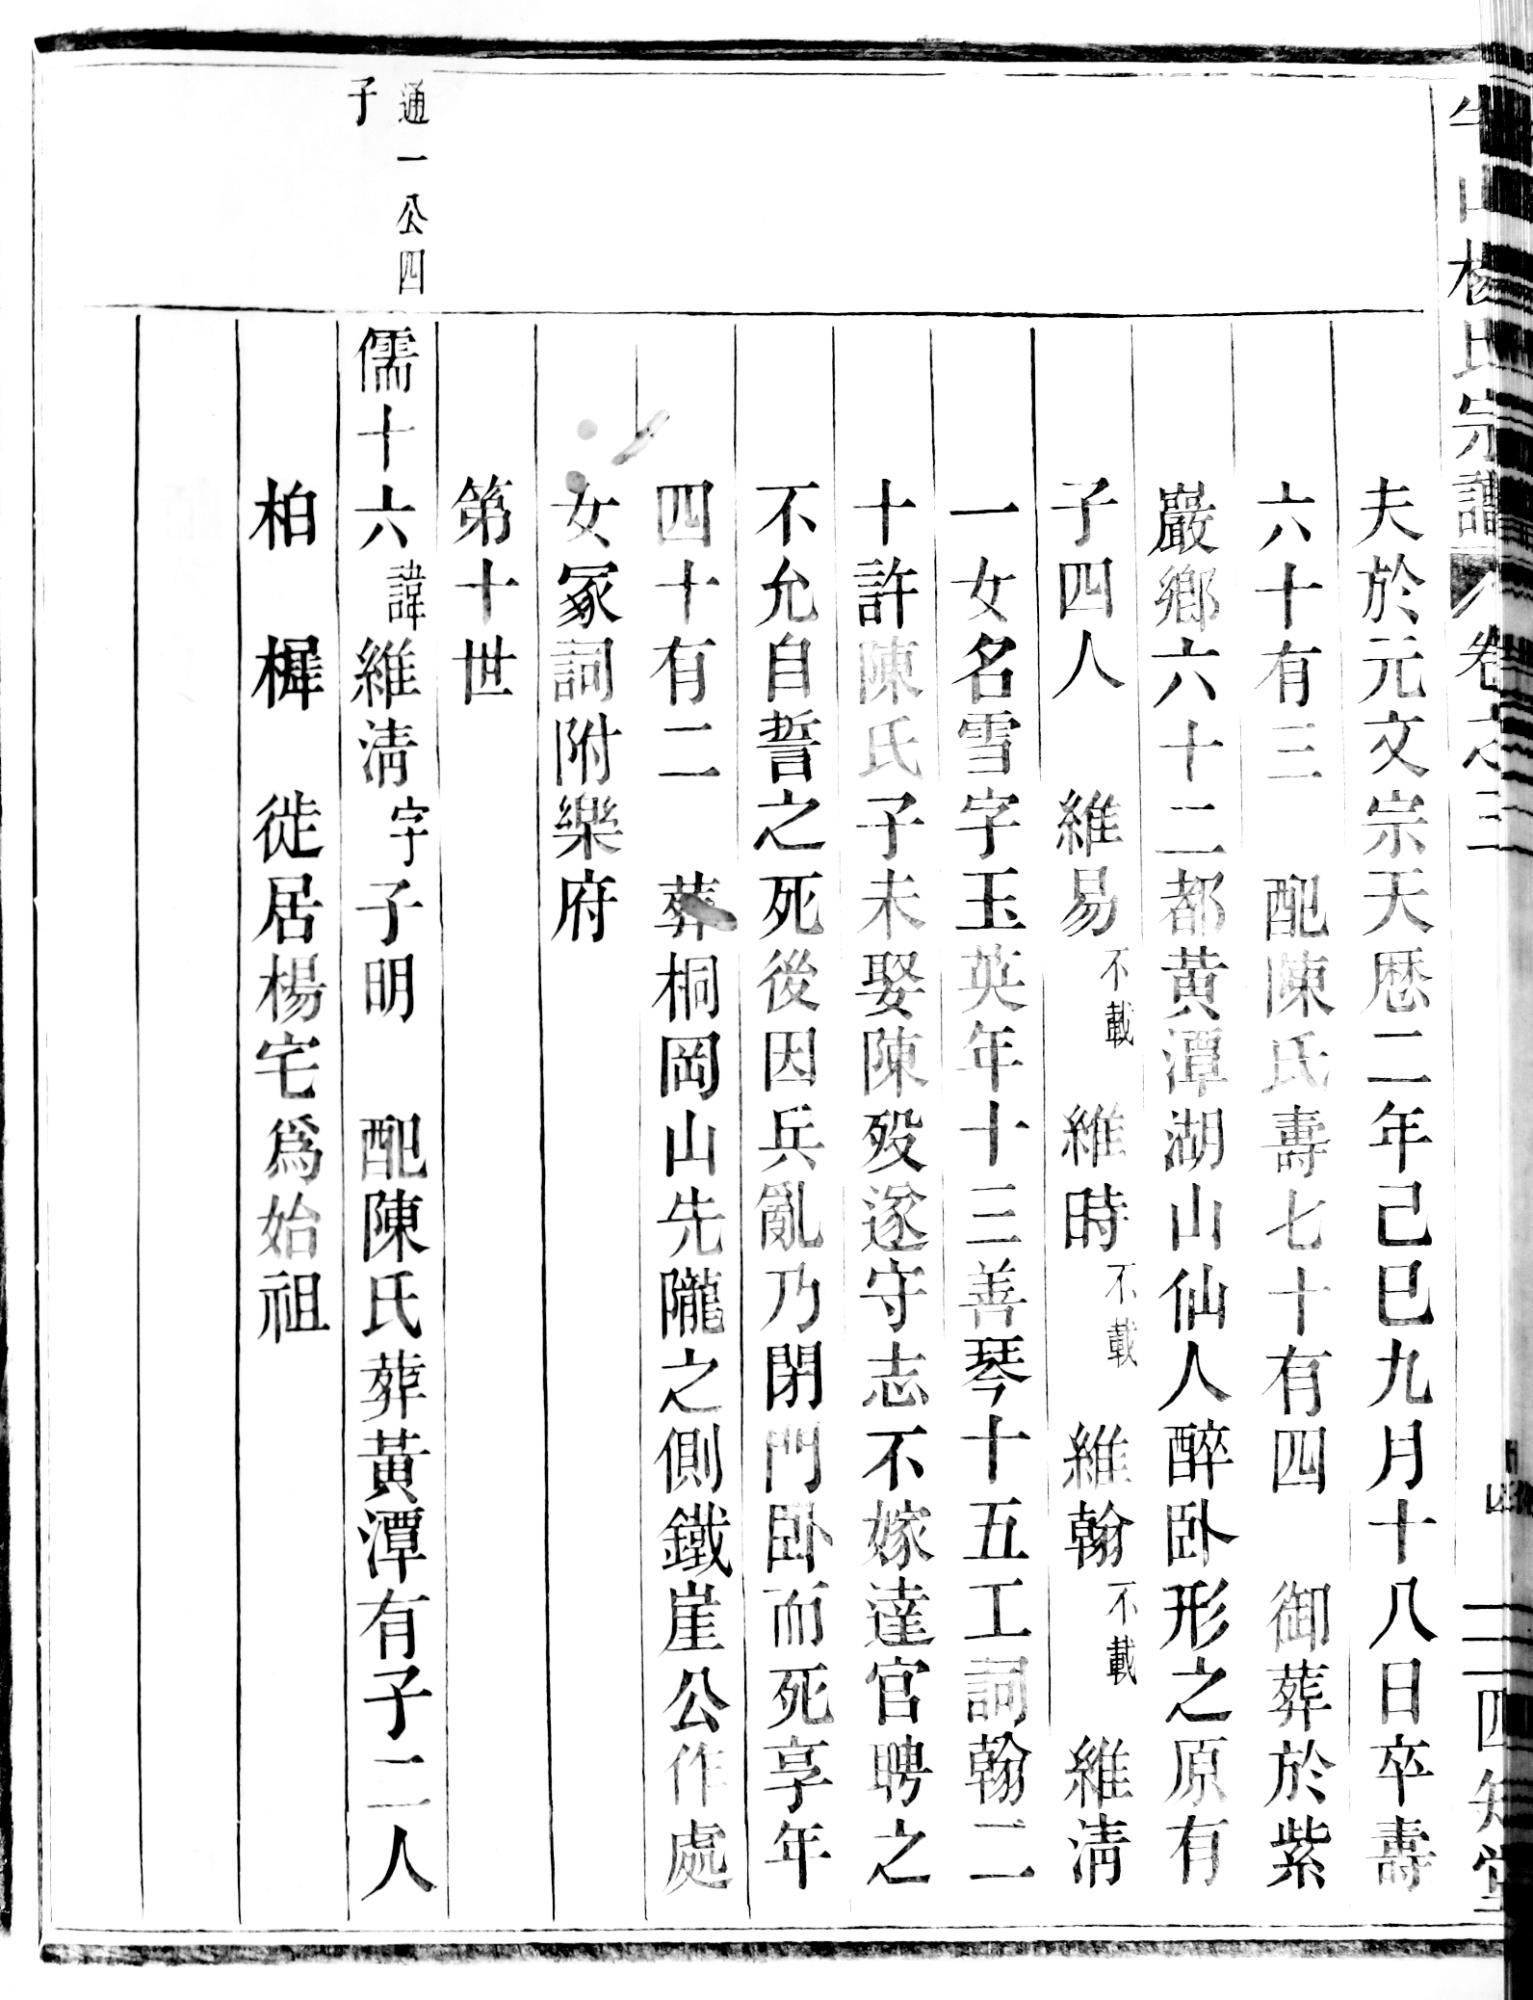 山楊氏宗譜 卷之三 二 四知堂
夫於元文宗天厯二年己巳九月十八日卒壽
六十有三 配陳氏壽七十有四 御葬於紫
巖鄉六十二都黃潭湖山仙人醉卧形之原有
子四人 維易不載 維時不載 維翰不載 維淸
一女名雪字玉英年十三善琴十五工詞翰二
十許陳氏子未娶陳歿遂守志不嫁達官聘之
不允自誓之死後因兵亂乃閉門卧而死享年
四十有二 葬桐岡山先隴之側鐵崖公作處
女冢詞附樂府
第十世
通一公四
子
儒十六諱維淸字子明 配陳氏葬黃潭有子二人
柏 樨 徙居楊宅爲始祖